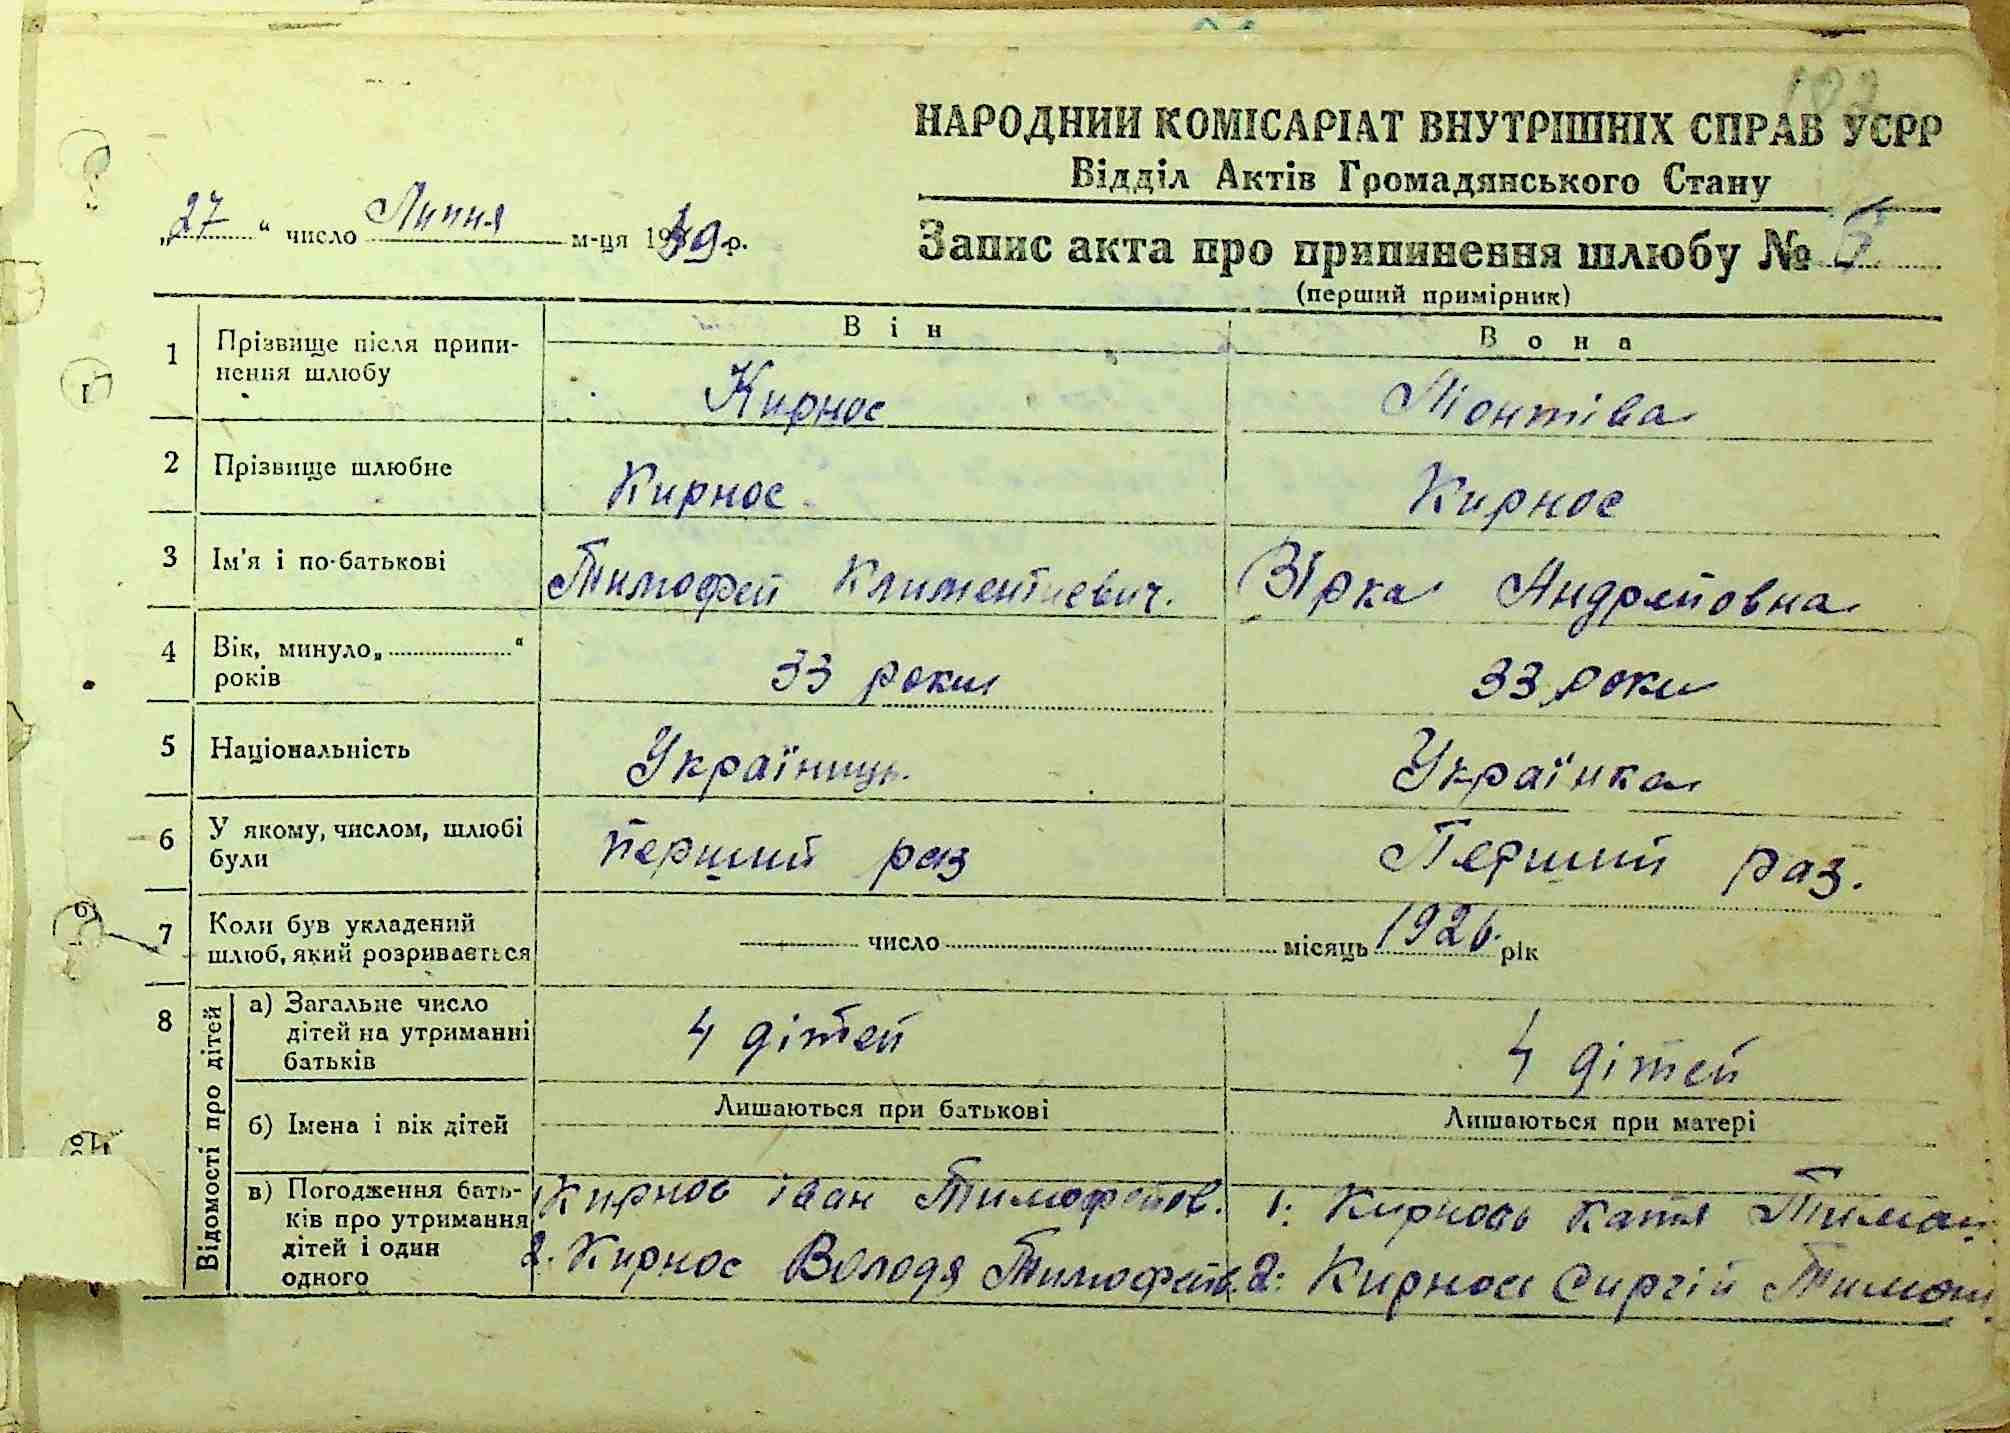 102
НАРОДНИЙ КОМІСАРІАТ ВНУТРІШНІХ СПРАВ УСРР
Відділ Актів Громадянського Стану
„27“ число Липня м-ця 1939 р.
Запис акта про припинення шлюбу № 5
(перший примірник)
Він Вона
1 Прізвище після припинення шлюбу Кирнос Монтіва
2 Прізвище шлюбне Кирнос Кирнос
3 Ім'я і по-батькові Тимофей Климентиевич. Вірка Андрейовна
4 Вік, минуло „ “ років 33 роки 33 роки
5 Національність Україниць Українка
6 У якому, числом, шлюбі були перший раз Перший раз.
7 Коли був укладений шлюб, який розривається число місяць 1926 рік
8 Відомості про дітей
а) Загальне число дітей на утриманні батьків 4 дітей 4 дітей
б) Імена і вік дітей Лишаються при батькові Лишаються при матері
в) Погодження батьків про утримання дітей і один одного
Кирнос іван Тимофейов. 1: Кирнось Катя
2. Кирнос Володя Тимофейов. 2: Кирнос Сиргій